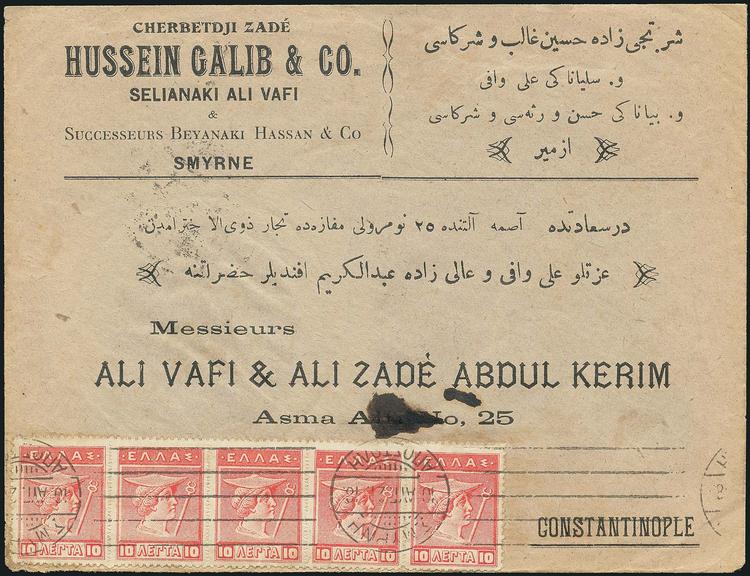 CHERBETDJI ZADÉ
HUSSEIN GALIB & CO.
SELIANAKI ALI VAFI
&
SUCCESSEURS BEYANAKI HASSAN & Co
SMYRNE
شربتجی زاده حسین غالب و شرکاسی
و. سلیاناکی علی وافی
و. بیاناکی حسن و رثه‌سی و شرکاسی
ازمیر
درسعادتده آصمه آلتنده ٢٥ نومرولی مغازه‌ده تجار ذوی الاحترامدن
عزتلو علی وافی و عالی زاده عبدالکریم افندیلر حضراتنه
Messieurs
ALI VAFI & ALI ZADÉ ABDUL KERIM
Asma No, 25
CONSTANTINOPLE
ΕΛΛΑΣ ΕΛΛΑΣ ΕΛΛΑΣ ΕΛΛΑΣ ΕΛΛΑΣ
10 ΛΕΠΤΑ 10 10 ΛΕΠΤΑ 10 10 ΛΕΠΤΑ 10 10 ΛΕΠΤΑ 10 10 ΛΕΠΤΑ 10